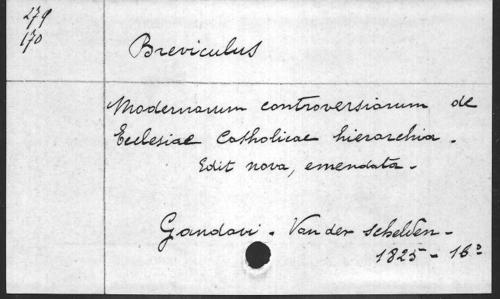 279
170
Breviculus
Modernarum controversiarum de
Ecclesiae Catholicae hierarchia.
Edit nova, emendata.
Gandavi. Van der Schelden.
1825 - 16º